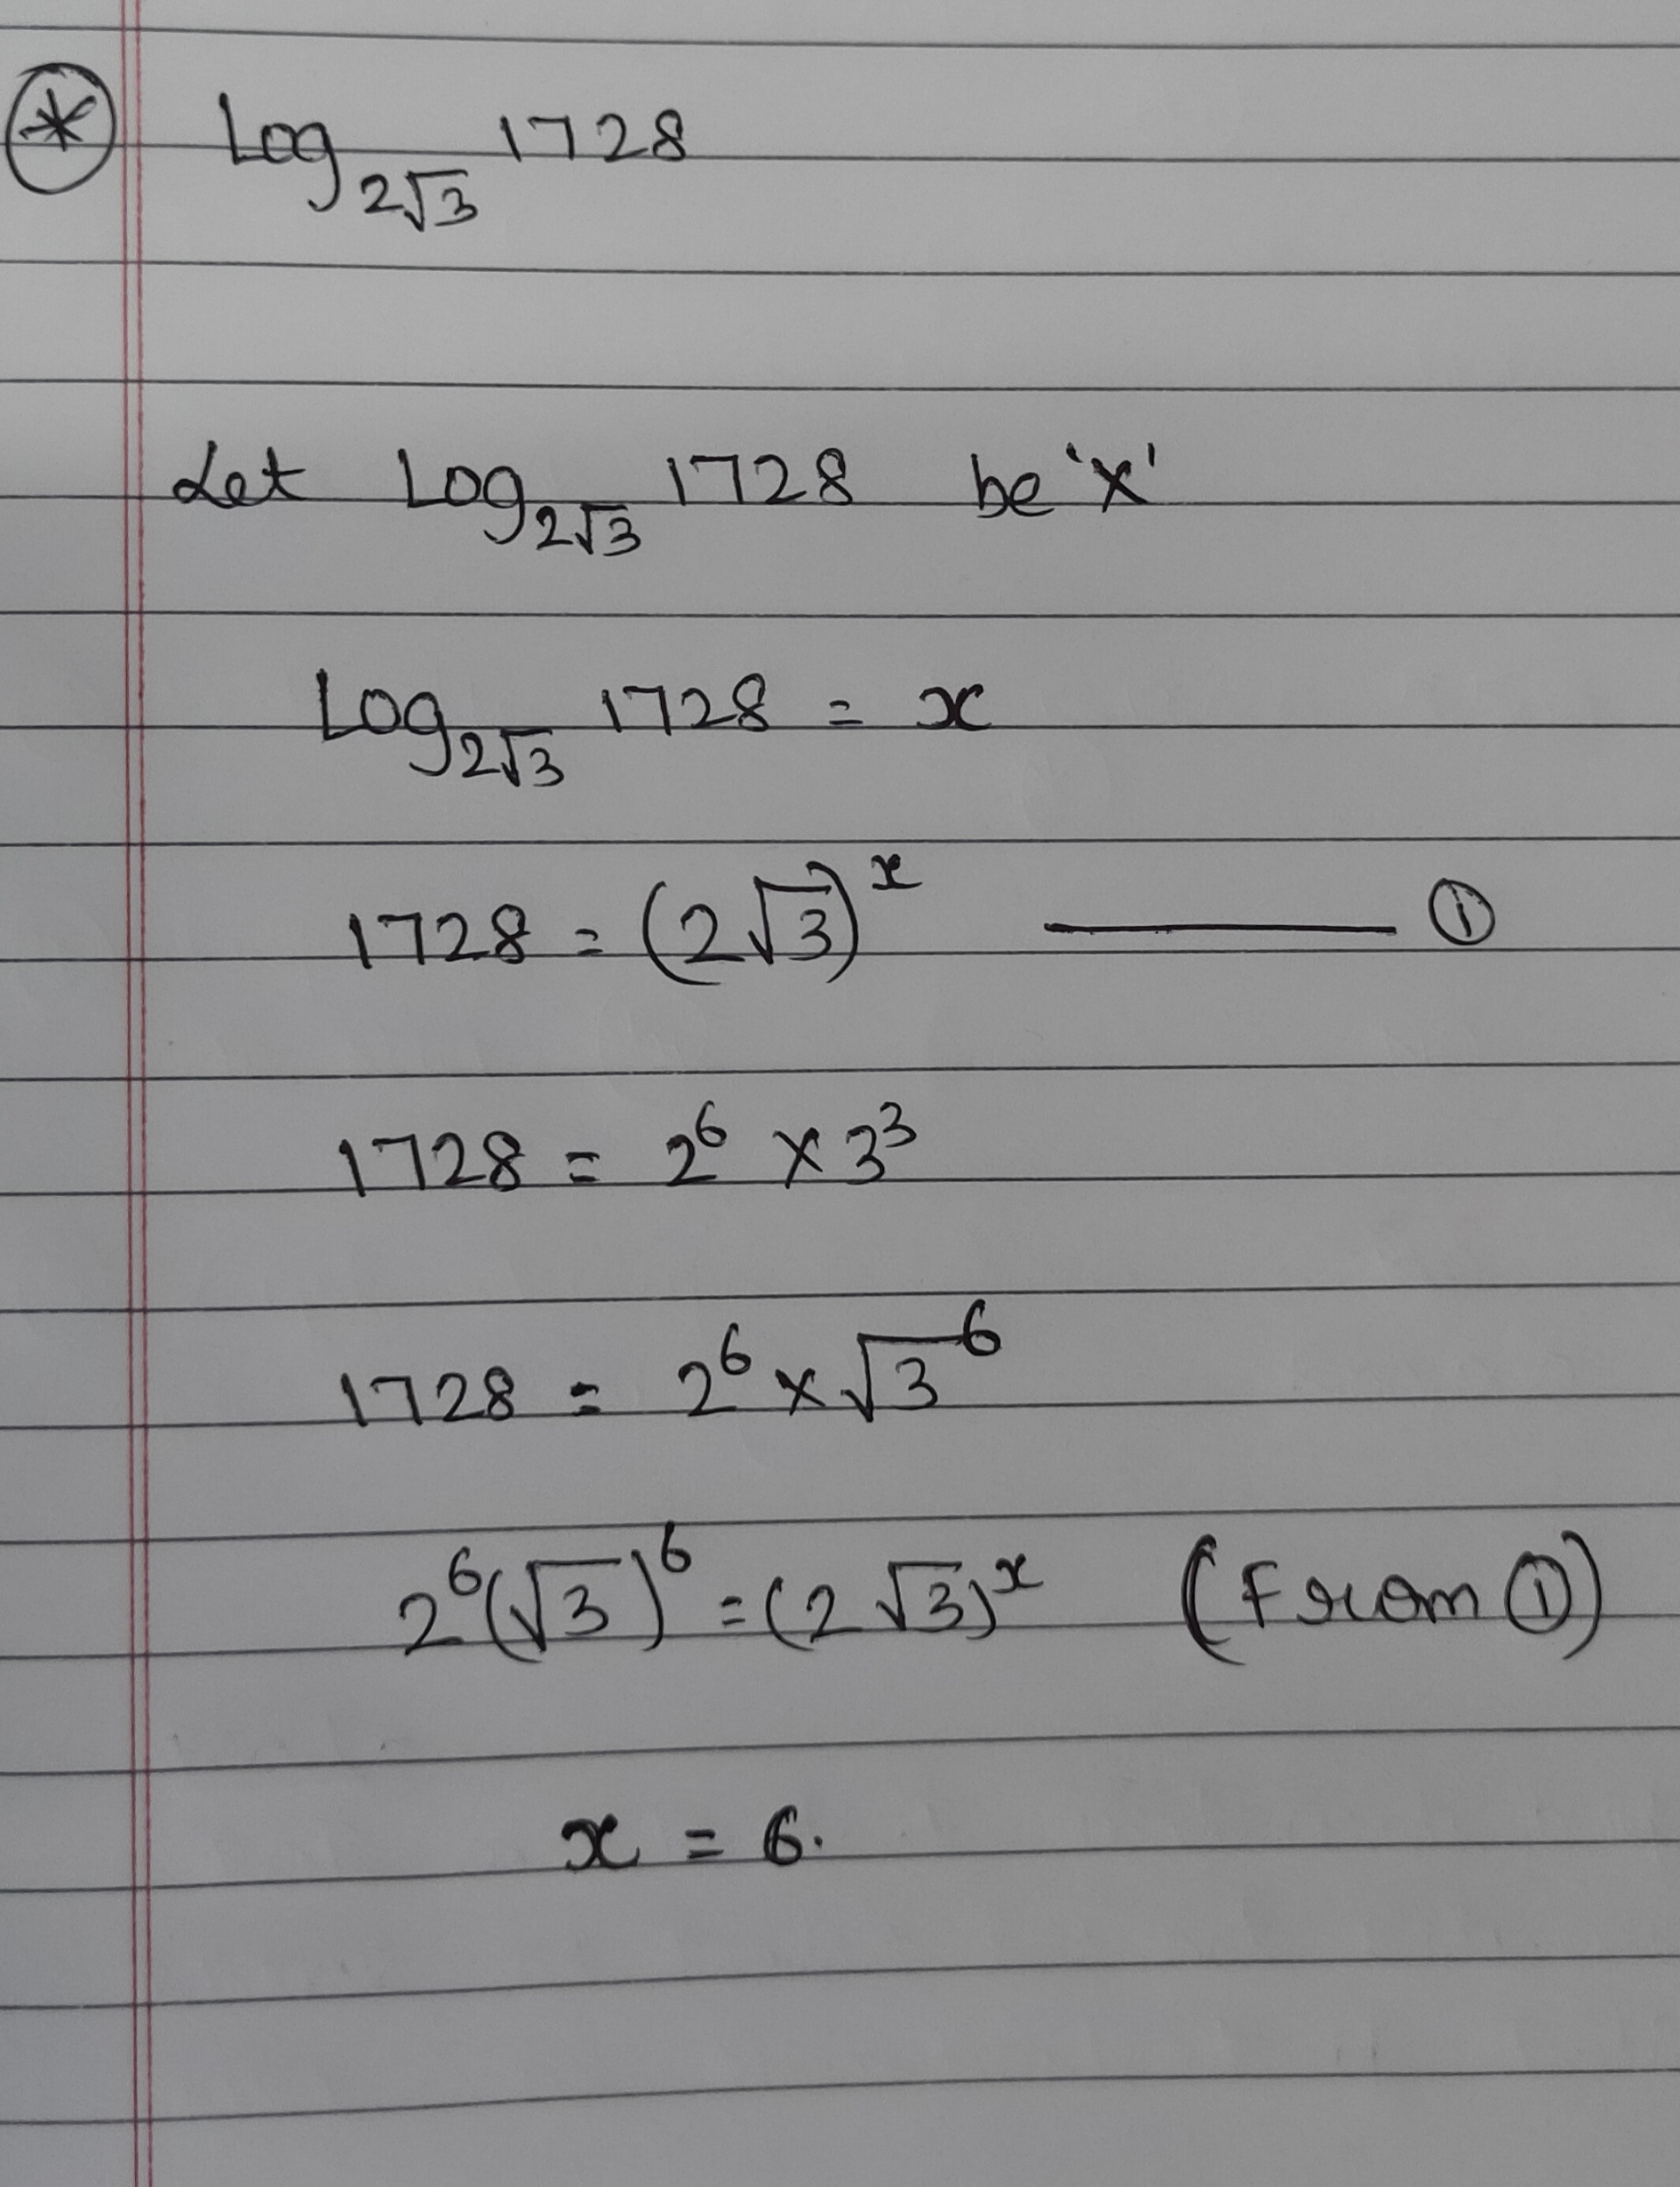 * Log₂√₃ 1728
Let Log₂√₃ 1728 be 'x'
Log₂√₃ 1728 = x
1728 = (2√3)ˣ ——— ①
1728 = 2⁶ × 3³
1728 = 2⁶ × √3⁶
2⁶(√3)⁶ = (2√3)ˣ (From ①)
x = 6.